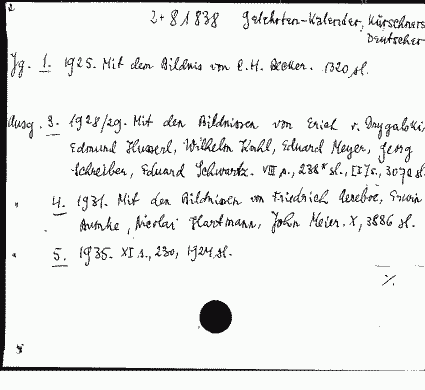 2+81838 Gelehrten-Kalender, Kürschners
Deutscher
Jg. 1. 1925. Mit dem Bildnis von C. H. Becker. 1320 sl.
Ausg. 3. 1928/29. Mit den Bildnissen von Erich v. Drygalski,
Edmund Husserl, Wilhelm Kahl, Eduard Meyer, Georg
Schreiber, Eduard Schwartz. VIII s., 238* sl., [I] s., 3070 sl.
" 4. 1931. Mit den Bildnissen von Friedrich Aereboe, Erwin
Bumke, Nicolai Hartmann, John Meier. X, 3886 sl.
" 5. 1935. XI s., 230, 1924 sl.
%